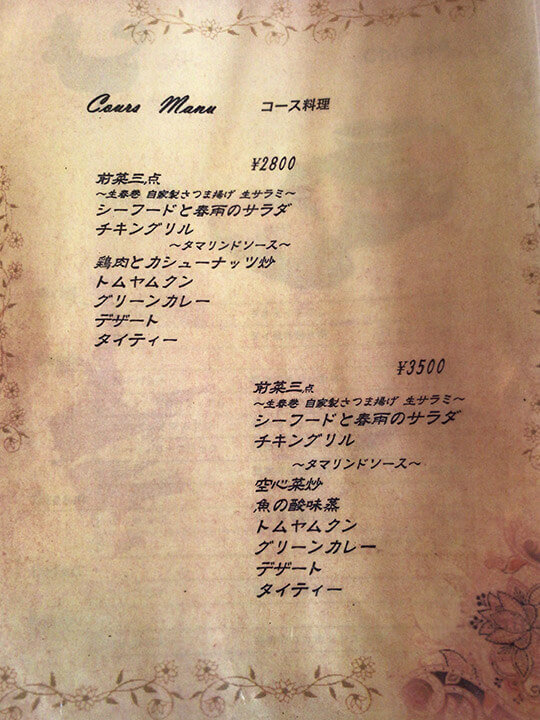 Cours Manu コース料理
¥2800
前菜三点
～生春巻 自家製さつま揚げ 生サラミ～
シーフードと春雨のサラダ
チキングリル
～タマリンドソース～
鶏肉とカシューナッツ炒
トムヤムクン
グリーンカレー
デザート
タイティー
¥3500
前菜三点
～生春巻 自家製さつま揚げ 生サラミ～
シーフードと春雨のサラダ
チキングリル
～タマリンドソース～
空心菜炒
魚の酸味蒸
トムヤムクン
グリーンカレー
デザート
タイティー